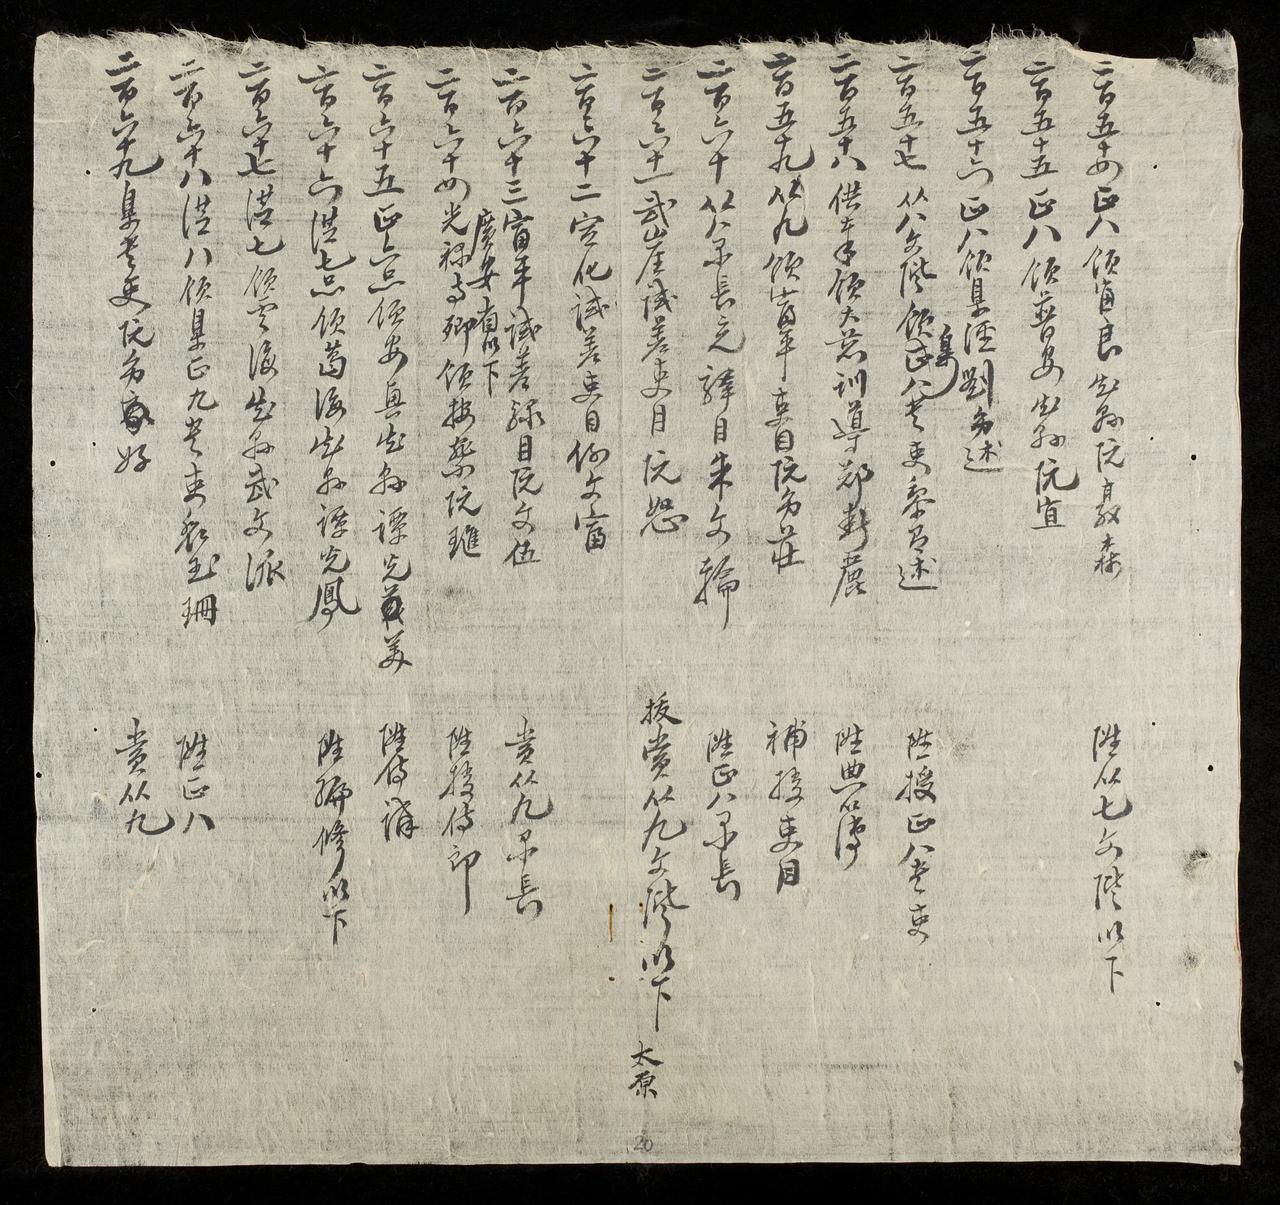 二百五十四正八領富良知縣阮教森 陞從七文階以下
二百五十五正八領普安知縣阮宜
二百五十六正八領臬涇劉多述
二百五十七從八文階領臬正八書吏黎有述 陞授正八書吏
二百五十八供奉領大慈訓導鄭新麗 陞典簿
二百五十九從九領富平吏目阮多莊 補授吏目
二百六十從八隊長充驛目朱文輪 陞正八隊長
二百六十一武崖試差吏目阮恕 授賞從九文階以下 太原
二百六十二定化試差吏目何文富
二百六十三富平試差驛目阮文伍 賞從九隊長
廣安省以下
二百六十四光祿寺卿領按察阮璡 陞授侍郎
二百六十五正六品領安興知縣譚光美 陞侍講
二百六十六從七品領葛海知縣譚光鳳 陞編修以下
二百六十七從七領雲海知縣武文派
二百六十八從八領臬正九書吏 玉珊 陞正八
二百六十九臬書吏阮多好 賞從九
20